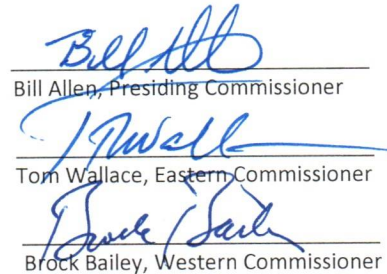 Bill Allen
Bill Allen, Presiding Commissioner
T Wall
Tom Wallace, Eastern Commissioner
Brock Bailey
Brock Bailey, Western Commissioner